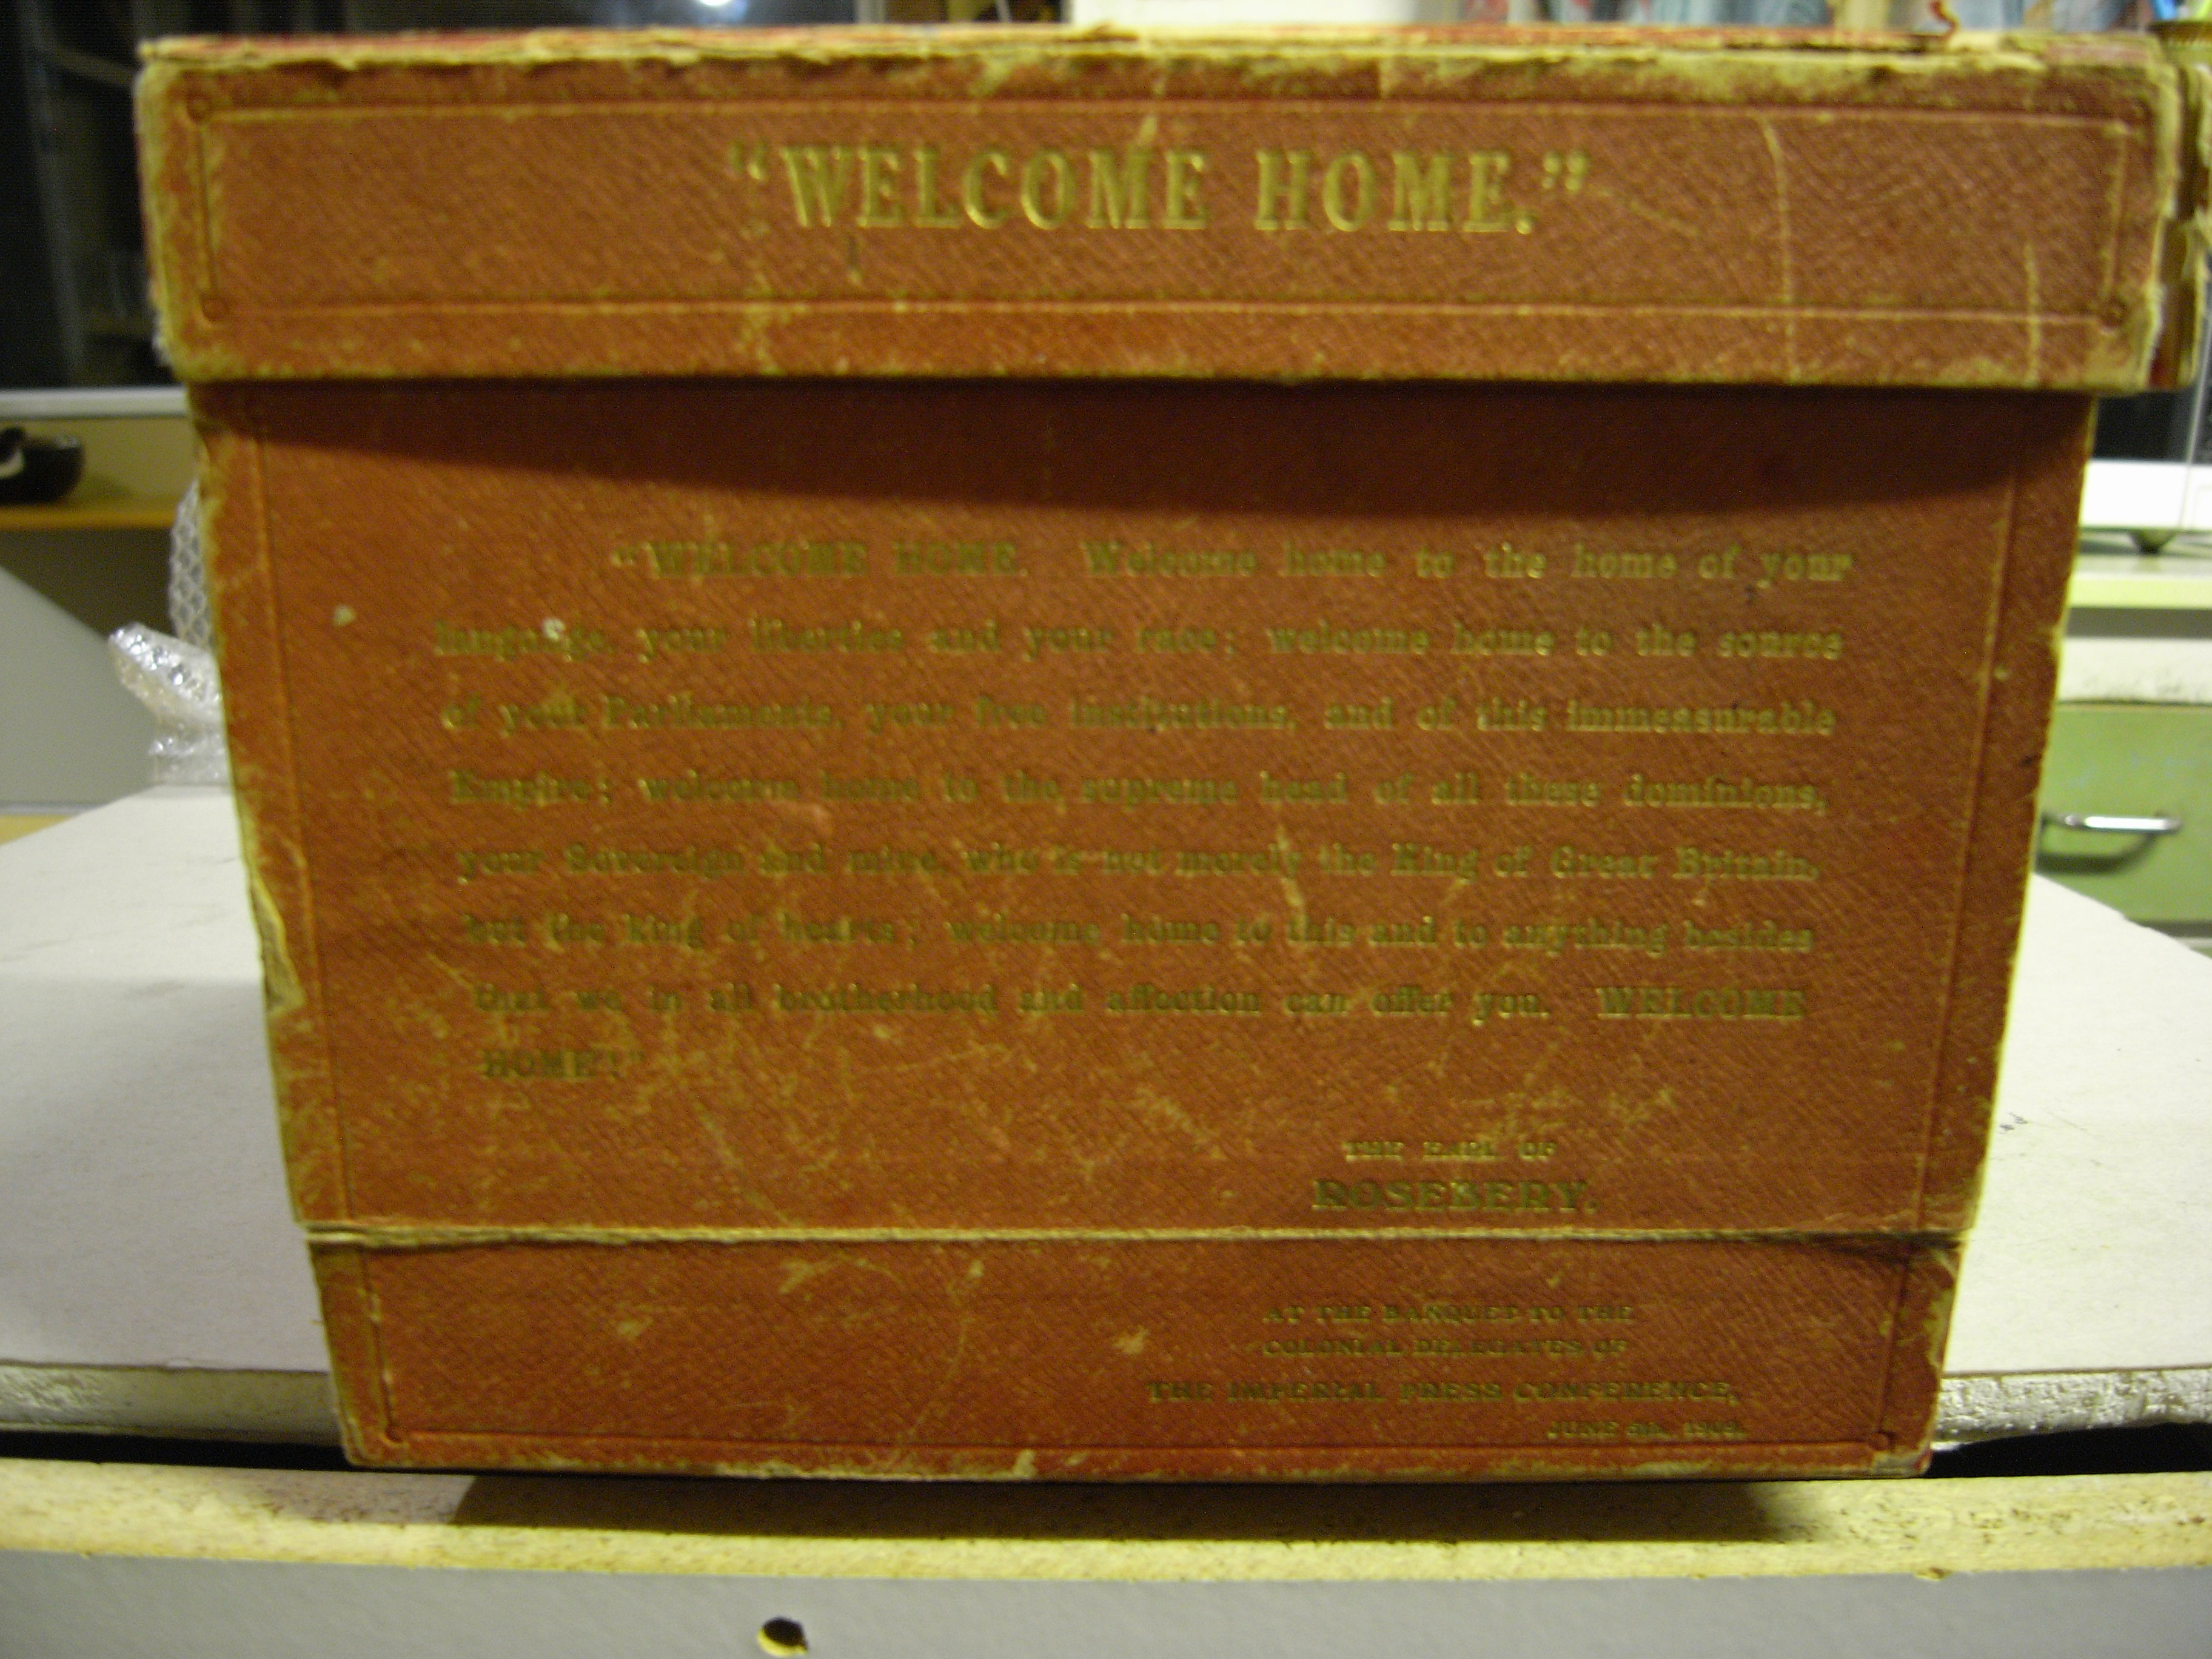 "WELCOME HOME."
"WELCOME HOME. Welcome home to the home of your
language, your liberties and your race; welcome home to the source
of your Parliaments, your free institutions, and of this immeasurable
Empire; welcome home to the supreme head of all these dominions,
your Sovereign and mine, who is not merely the King of Great Britain,
but the king of hearts; welcome home to this and to anything besides
that we in all brotherhood and affection can offer you. WELCOME
HOME!"
THE EARL OF
ROSEBERY.
AT THE BANQUET TO THE
COLONIAL DELEGATES OF
THE IMPERIAL PRESS CONFERENCE,
JUNE 1909.